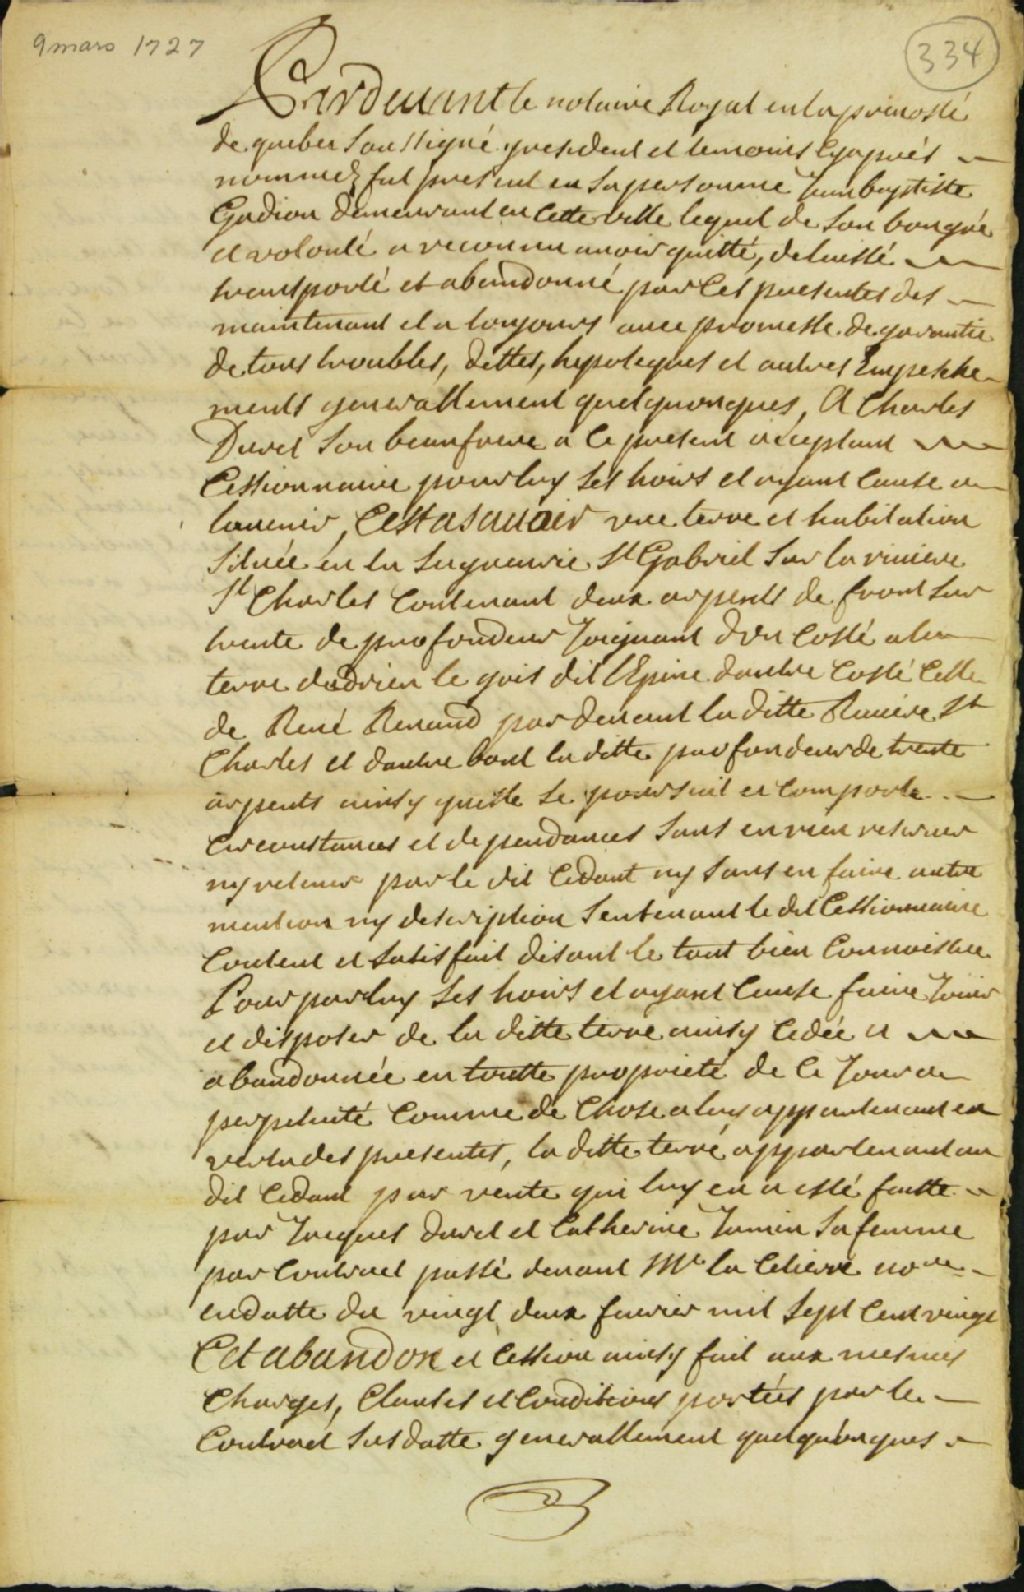 9 mars 1727
334
Pardevant le notaire Royal en la prevosté
de quebec Soussigné y resident et temoins Cyaprés
nommez fut present en Sa personne Jean baptiste
Gadiou demeurant en Cette ville lequel de Son bon gré
et volonté a reconnu avoir quitté, delaissé
transporté et abandonné par Ces presentes des
maintenant et a toujours avec promesse de garantie
de tous troubles, dettes, hypoteques et autres Empesche
ments generallement quelquonques, A Charles
Duret Son beaufrere a ce present acceptant
Cessionnaire pour luy Ses hoirs et ayant Cause a
lauenir, Cest asauoir une terre et habitation
Situéé en la Seigneurie St Gabriel Sur la riuiere
St Charles Contenant deux arpents de front Sur
trente de profondeur Joignant d'un Costé a la
terre dadrien le gris dit lEpine dautre Costé Celle
de René Renaud par deuant la ditte Riuiere St
Charles et dautre bout la ditte profondeur de trente
arpents ainsy quelle Se poursuit et Comporte
Circonstances et dependances Sans en rien reseruer
ny retenir par le dit Cedant ny Sans en faire autre
mention ny description Sentenant le dit Cessionnaire
Content et Satisfait disant le tout bien Connoistre
Pour par luy Ses hoirs et ayant Cause faire Jouir
et disposer de la ditte terre ainsy Cedéé et
abandonnéé en toutte proprieté de Ce Jour a
perpetuité Comme de Chose a luy appartenant en
vertu des presentes, la ditte terre appartenant au
dit Cedant par vente qui luy en a esté faitte
par Jacques duret et Catherine Jamin Sa femme
par Contract passé deuant Me la Cetierre nore
en datte du vingt deux feurier mil Sept Cent vingt
Cet abandon et Cession ainsy fait aux mesmes
Charges, Clauses et Conditions portéés par le
Contract Susdatte generallement quelqu'onques